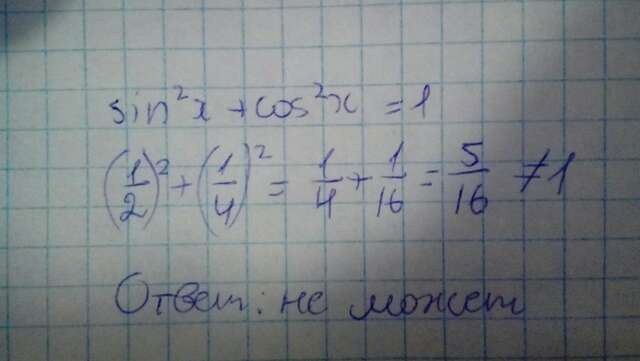 sin²x + cos²x = 1
(1/2)² + (1/4)² = 1/4 + 1/16 = 5/16 ≠ 1
Ответ: не может